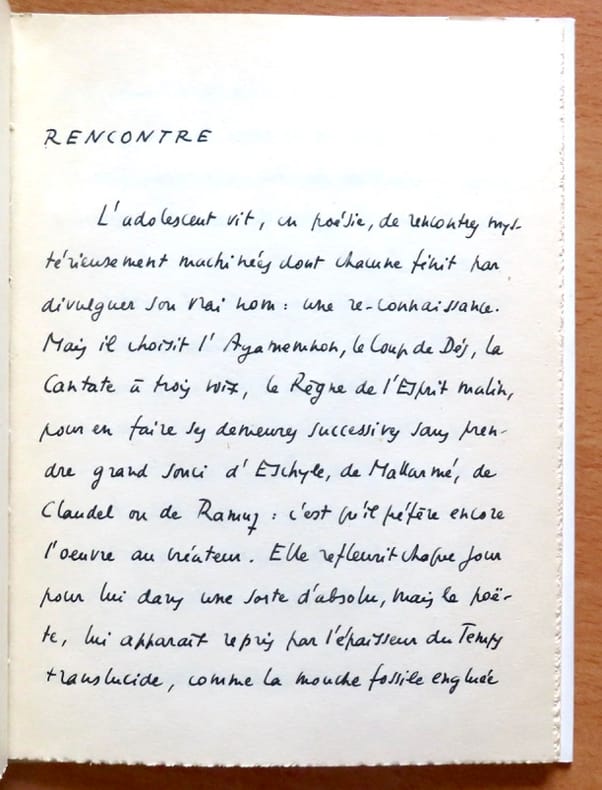 RENCONTRE
L'adolescent vit, en poésie, de rencontres mys-
térieusement machinées dont chacune finit par
divulguer son vrai nom : une re-connaissance.
Mais il choisit l'Agamemnon, le Coup de Dés, la
Cantate à trois voix, le Règne de l'Esprit malin,
pour en faire ses demeures successives sans pren-
dre grand souci d'Eschyle, de Mallarmé, de
Claudel ou de Ramuz : c'est qu'il préfère encore
l'oeuvre au créateur. Elle refleurit chaque jour
pour lui dans une sorte d'absolu, mais le poë-
te, lui apparaît repris par l'épaisseur du Temps
translucide, comme la mouche fossile engluée